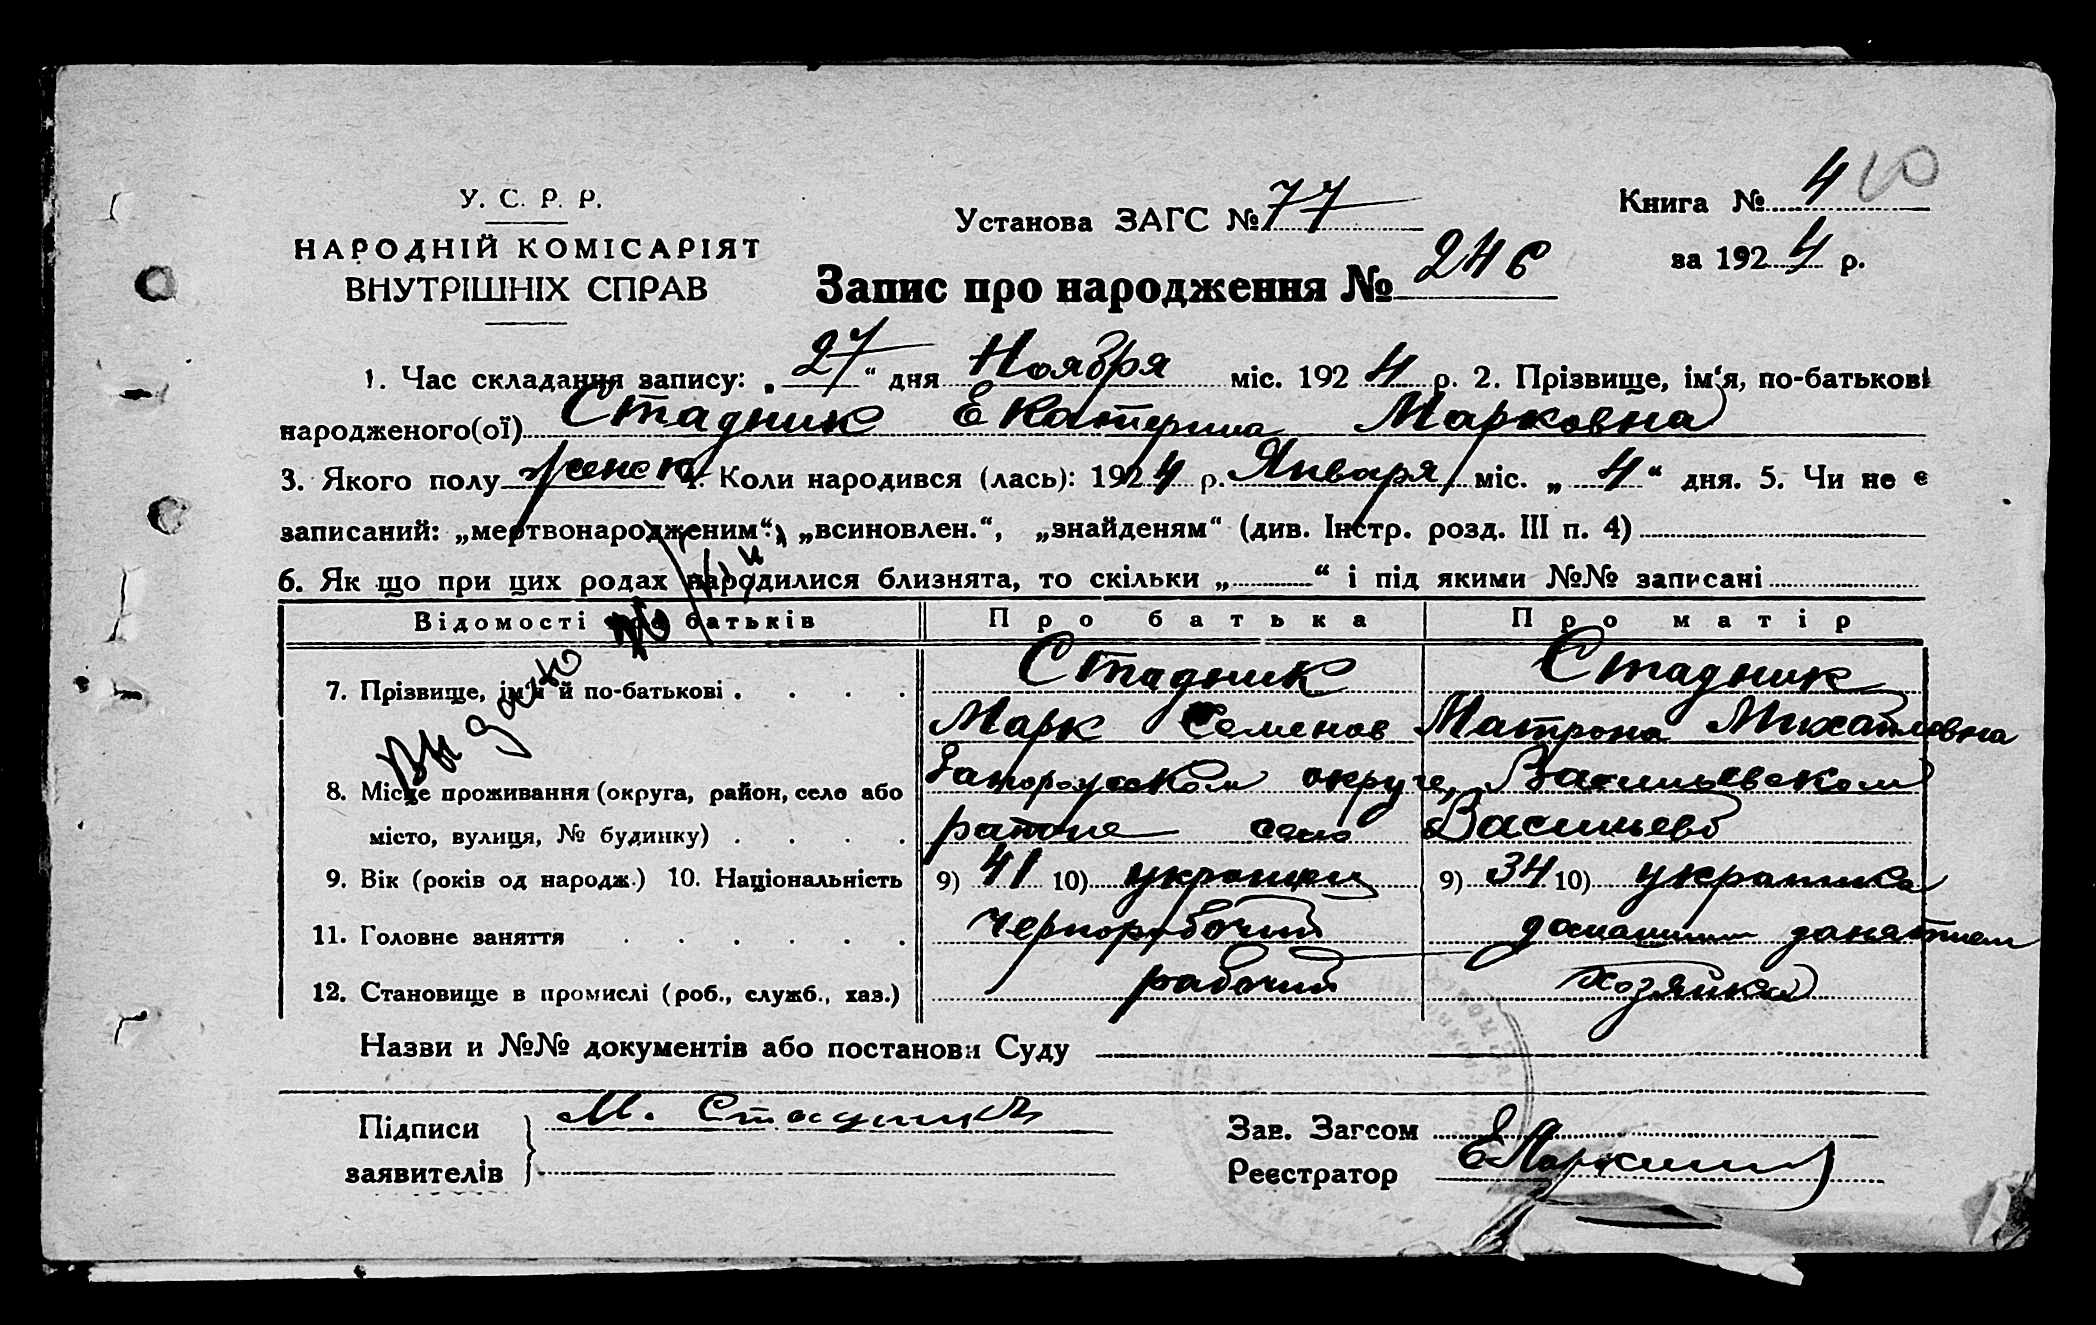 У. С. Р. Р.
НАРОДНІЙ КОМІСАРІЯТ
ВНУТРІШНІХ СПРАВ
Установа ЗАГС № 77
Книга № 4
за 1924 р.
Запис про народження № 246
1. Час складання запису: „27“ дня Ноября міс. 1924 р. 2. Прізвище, ім‘я, по-батькові
народженого(ої) Стадник Екатерина Марковна
3. Якого полу женск 4. Коли народився (лась): 1924 р. Января міс. „4“ дня. 5. Чи не є
записаний: „мертвонародженим“, „всиновлен.“, „знайденям“ (див. Інстр. розд. III п. 4)
6. Як що при цих родах народилися близнята, то скільки „ “ і під якими №№ записані
Відомості про батьків Про батька Про матір
7. Прізвище, ім‘я й по-батькові . . . . Стадник Стадник
Марк Семенов Матрона Михайловна
8. Місце проживання (округа, район, село або Запорожском округе, Васильевском
місто, вулиця, № будинку) . . . . районе село Васильево
9. Вік (років од народж.) 10. Національність 9) 41 10) украинец 9) 34 10) украинка
11. Головне заняття . . . . . . чернорабочий домашним занятием
12. Становище в промислі (роб., служб., хаз.) рабочий хозяйка
Назви и №№ документів або постанови Суду
Підписи
заявителів
М. Стадник
Зав. Загсом
Реєстратор